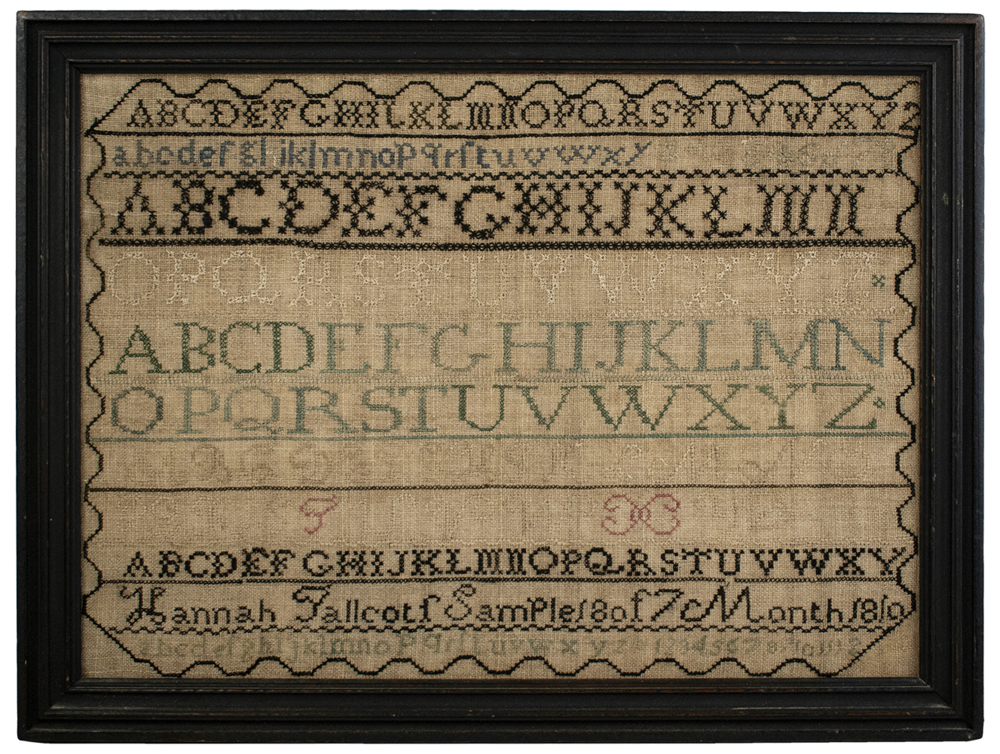 ABCDEFGHIJKLMNOPQRSTUVWXYZ
abcdefghijklmnopqrſtuvwxy
ABCDEFGHIJKLMN
OPQRSTUVWXYZ
ABCDEFGHIJKLMN
OPQRSTUVWXYZ
T
ABCDEFGHIJKLMNOPQRSTUVWXY
Hannah Tallcotſ Sample 18 of 7 Month 1810
abcdefghijklmnopqrſtuvwxyz 12345678